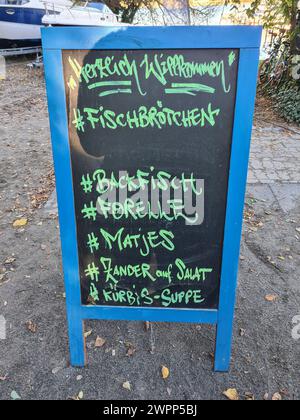 "Herzlich Willkommen"
#FISCHBRÖTCHEN
#BACKFISCH
#FORELLE
#MATJES
#ZANDER auf SALAT
#KÜRBIS-SUPPE